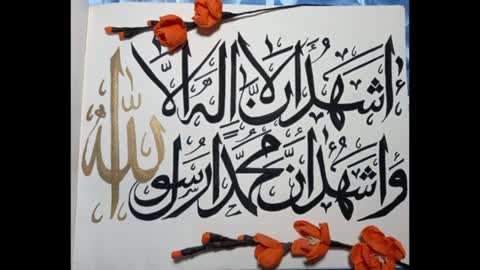 أشهد ان لا اله الا
واشهد ان محمدا رسول
الله